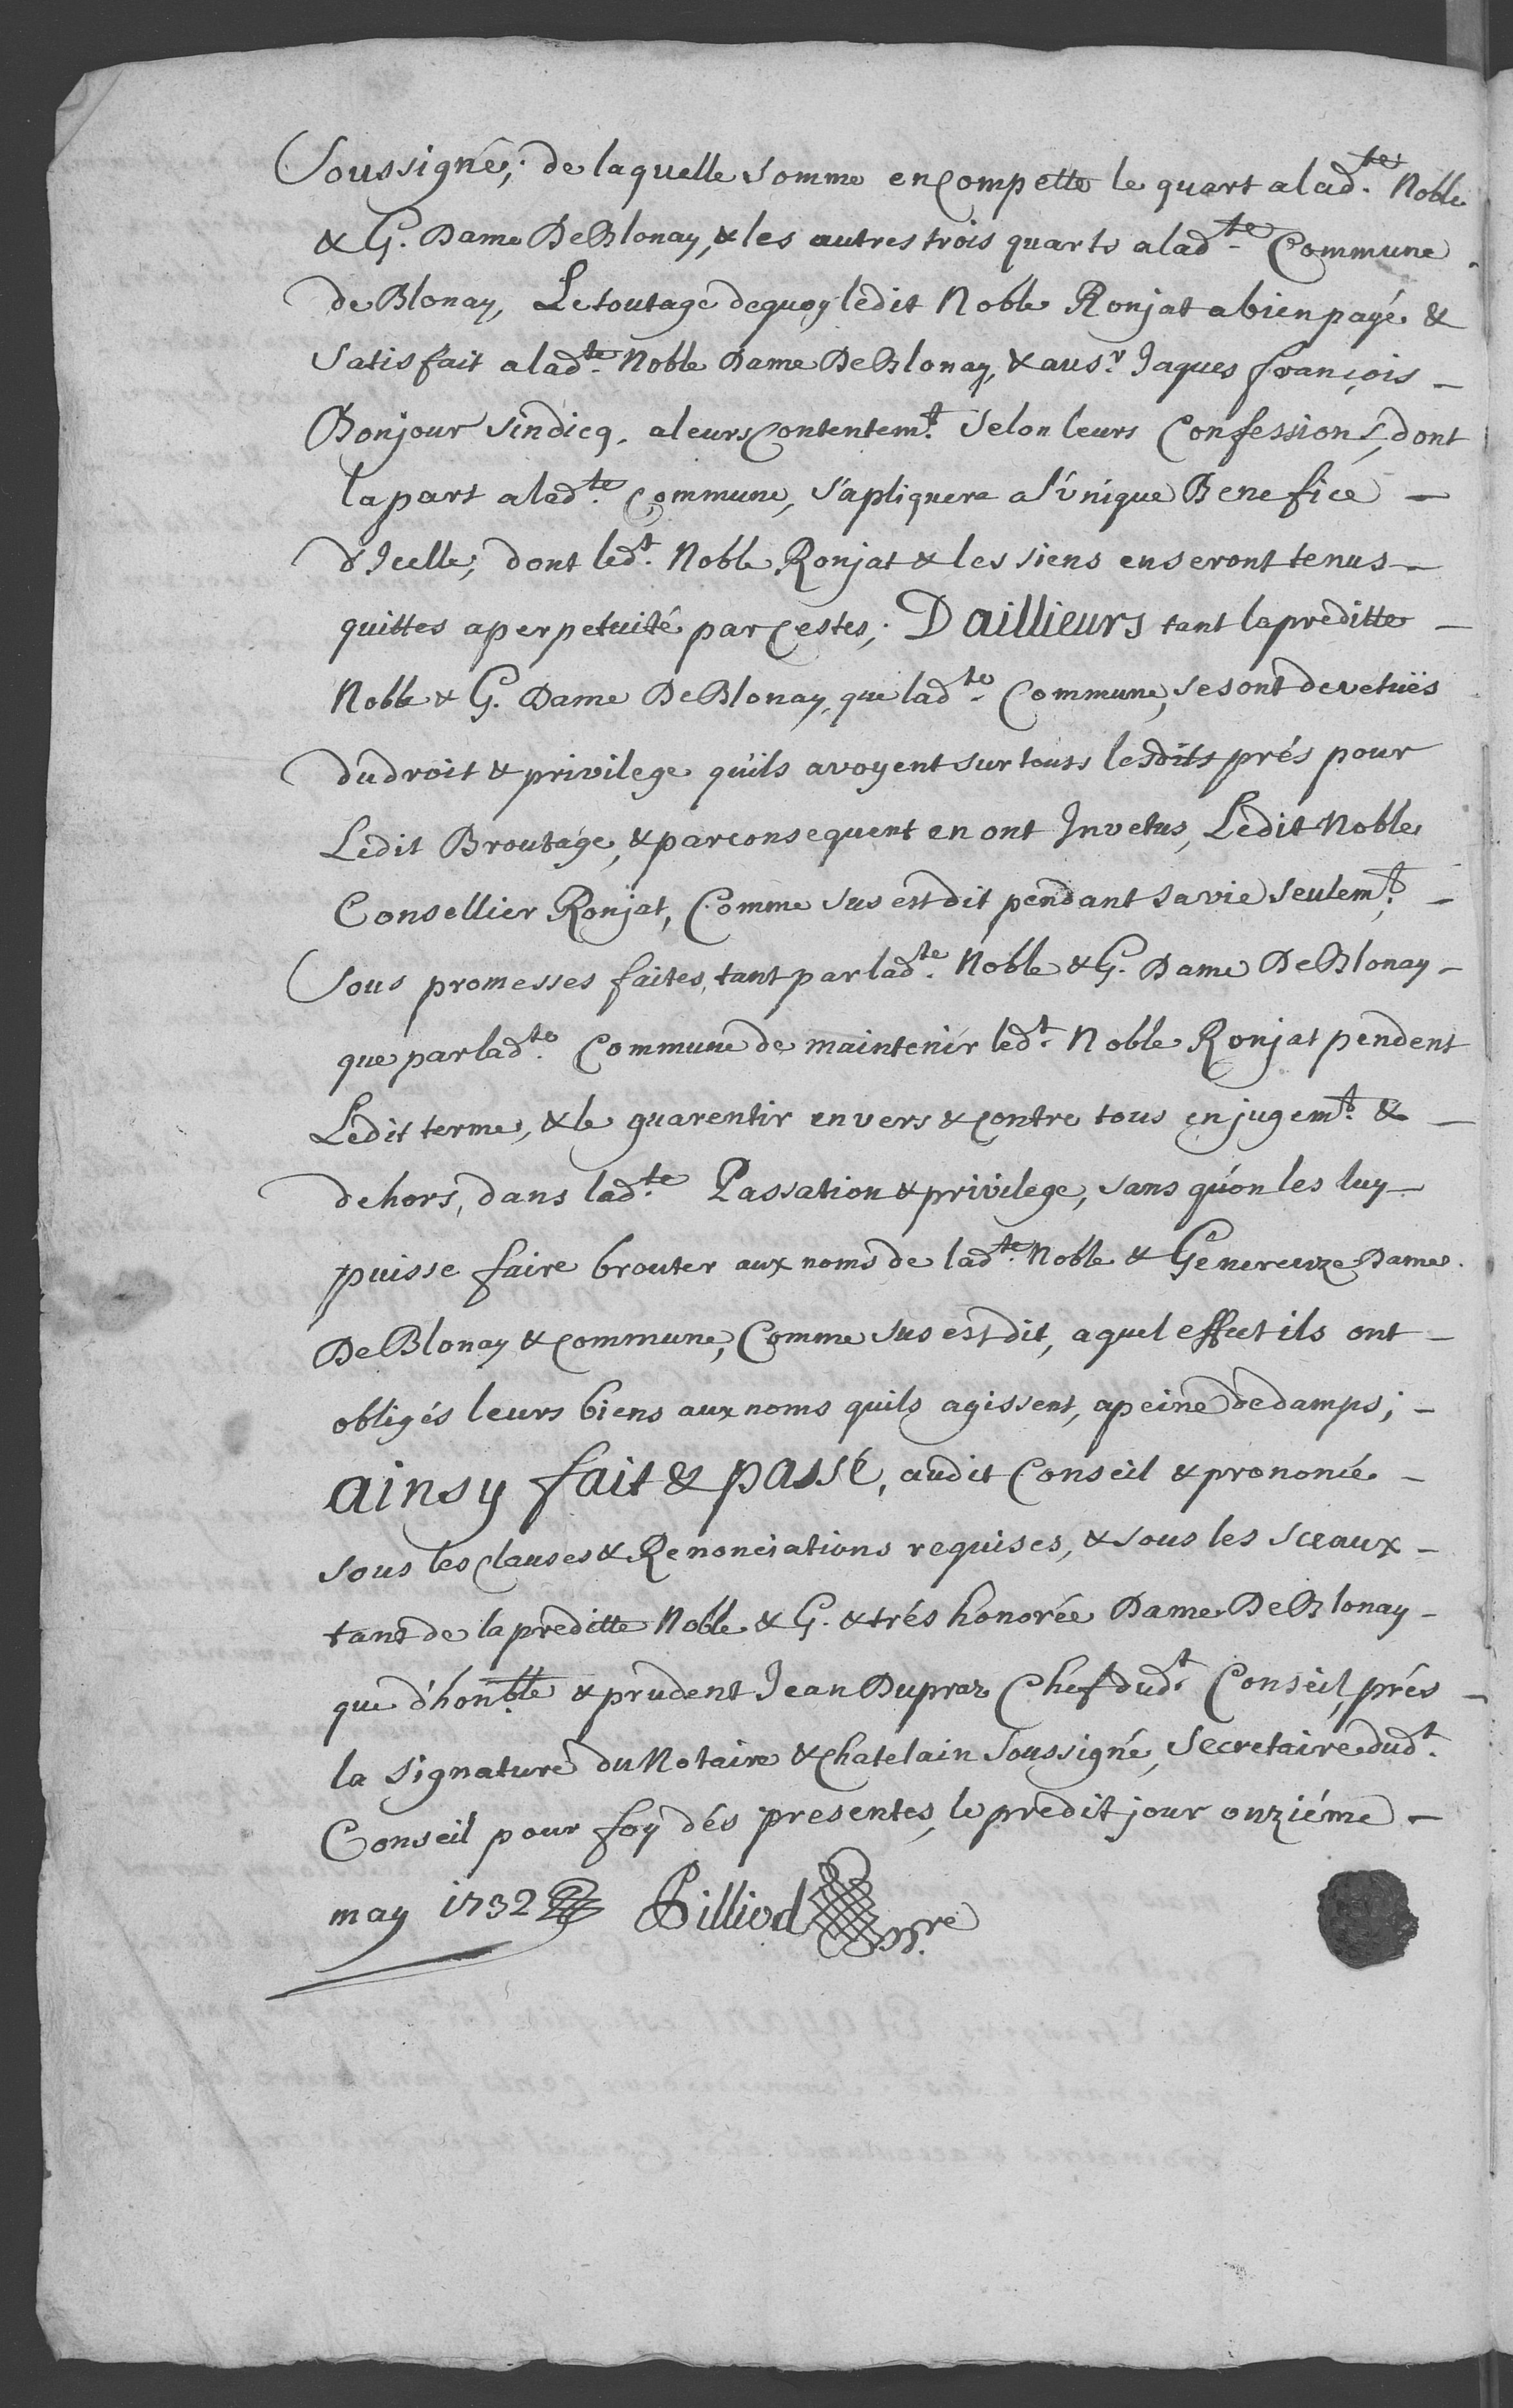 Soussigné; de laquelle somme en compette le quart a lad.te Noble
& G. Dame De Blonay, & les autres trois quarts a lad.te Commune
de Blonay, Le toutage dequoy ledit Noble Ronjat a bien payé &
satisfait a lad.te Noble Dame De Blonay, & au s.r Jaques françois
Bonjour sindicq, a leurs contentem.t selon leurs Confessions, dont
la part a lad.te Commune, s'apliquera a l'unique Benefice
d'Icelle; dont led.t Noble Ronjat & les siens en seront tenus
quittes a perpetuité par cestes; Daillieurs tant la preditte
Noble & G. Dame De Blonay, que lad.te Commune, se sont devetuës
du droit & privilege qu'ils avoyent sur tous lesdits prés pour
Ledit Broutage, & par consequent en ont Invetus, Ledit Noble
Consellier Ronjat, Comme sus est dit pendant sa vie seulem.t
sous promesses faites, tant par lad.te Noble & G. Dame De Blonay
que par lad.te Commune de maintenir led.t Noble Ronjat pendent
Ledit terme, & le guarentir envers & contre tous en jugem.t &
dehors, dans lad.te Passation & privilege, sans qu'on les luy
puisse faire brouter aux noms de lad.te Noble & Genereuze Dame
De Blonay & commune, Comme sus est dit, a quel effect ils ont
obligés leurs biens aux noms quils agissent, a peine de damps;
ainsy fait & passé, audit Conseil & prononcé
sous les clauses & Renonciations requises, & sous les sceaux
tant de la preditte Noble & G. & trés honorée Dame De Blonay
que d'hon.ble & prudent Jean Dupraz Chef dud.t Conseil, prés
la signature du Notaire & Chatelain soussigné, Secretaire dud.t
Conseil pour foy dés presentes, le predit jour onziéme
may 1732 Pilliod